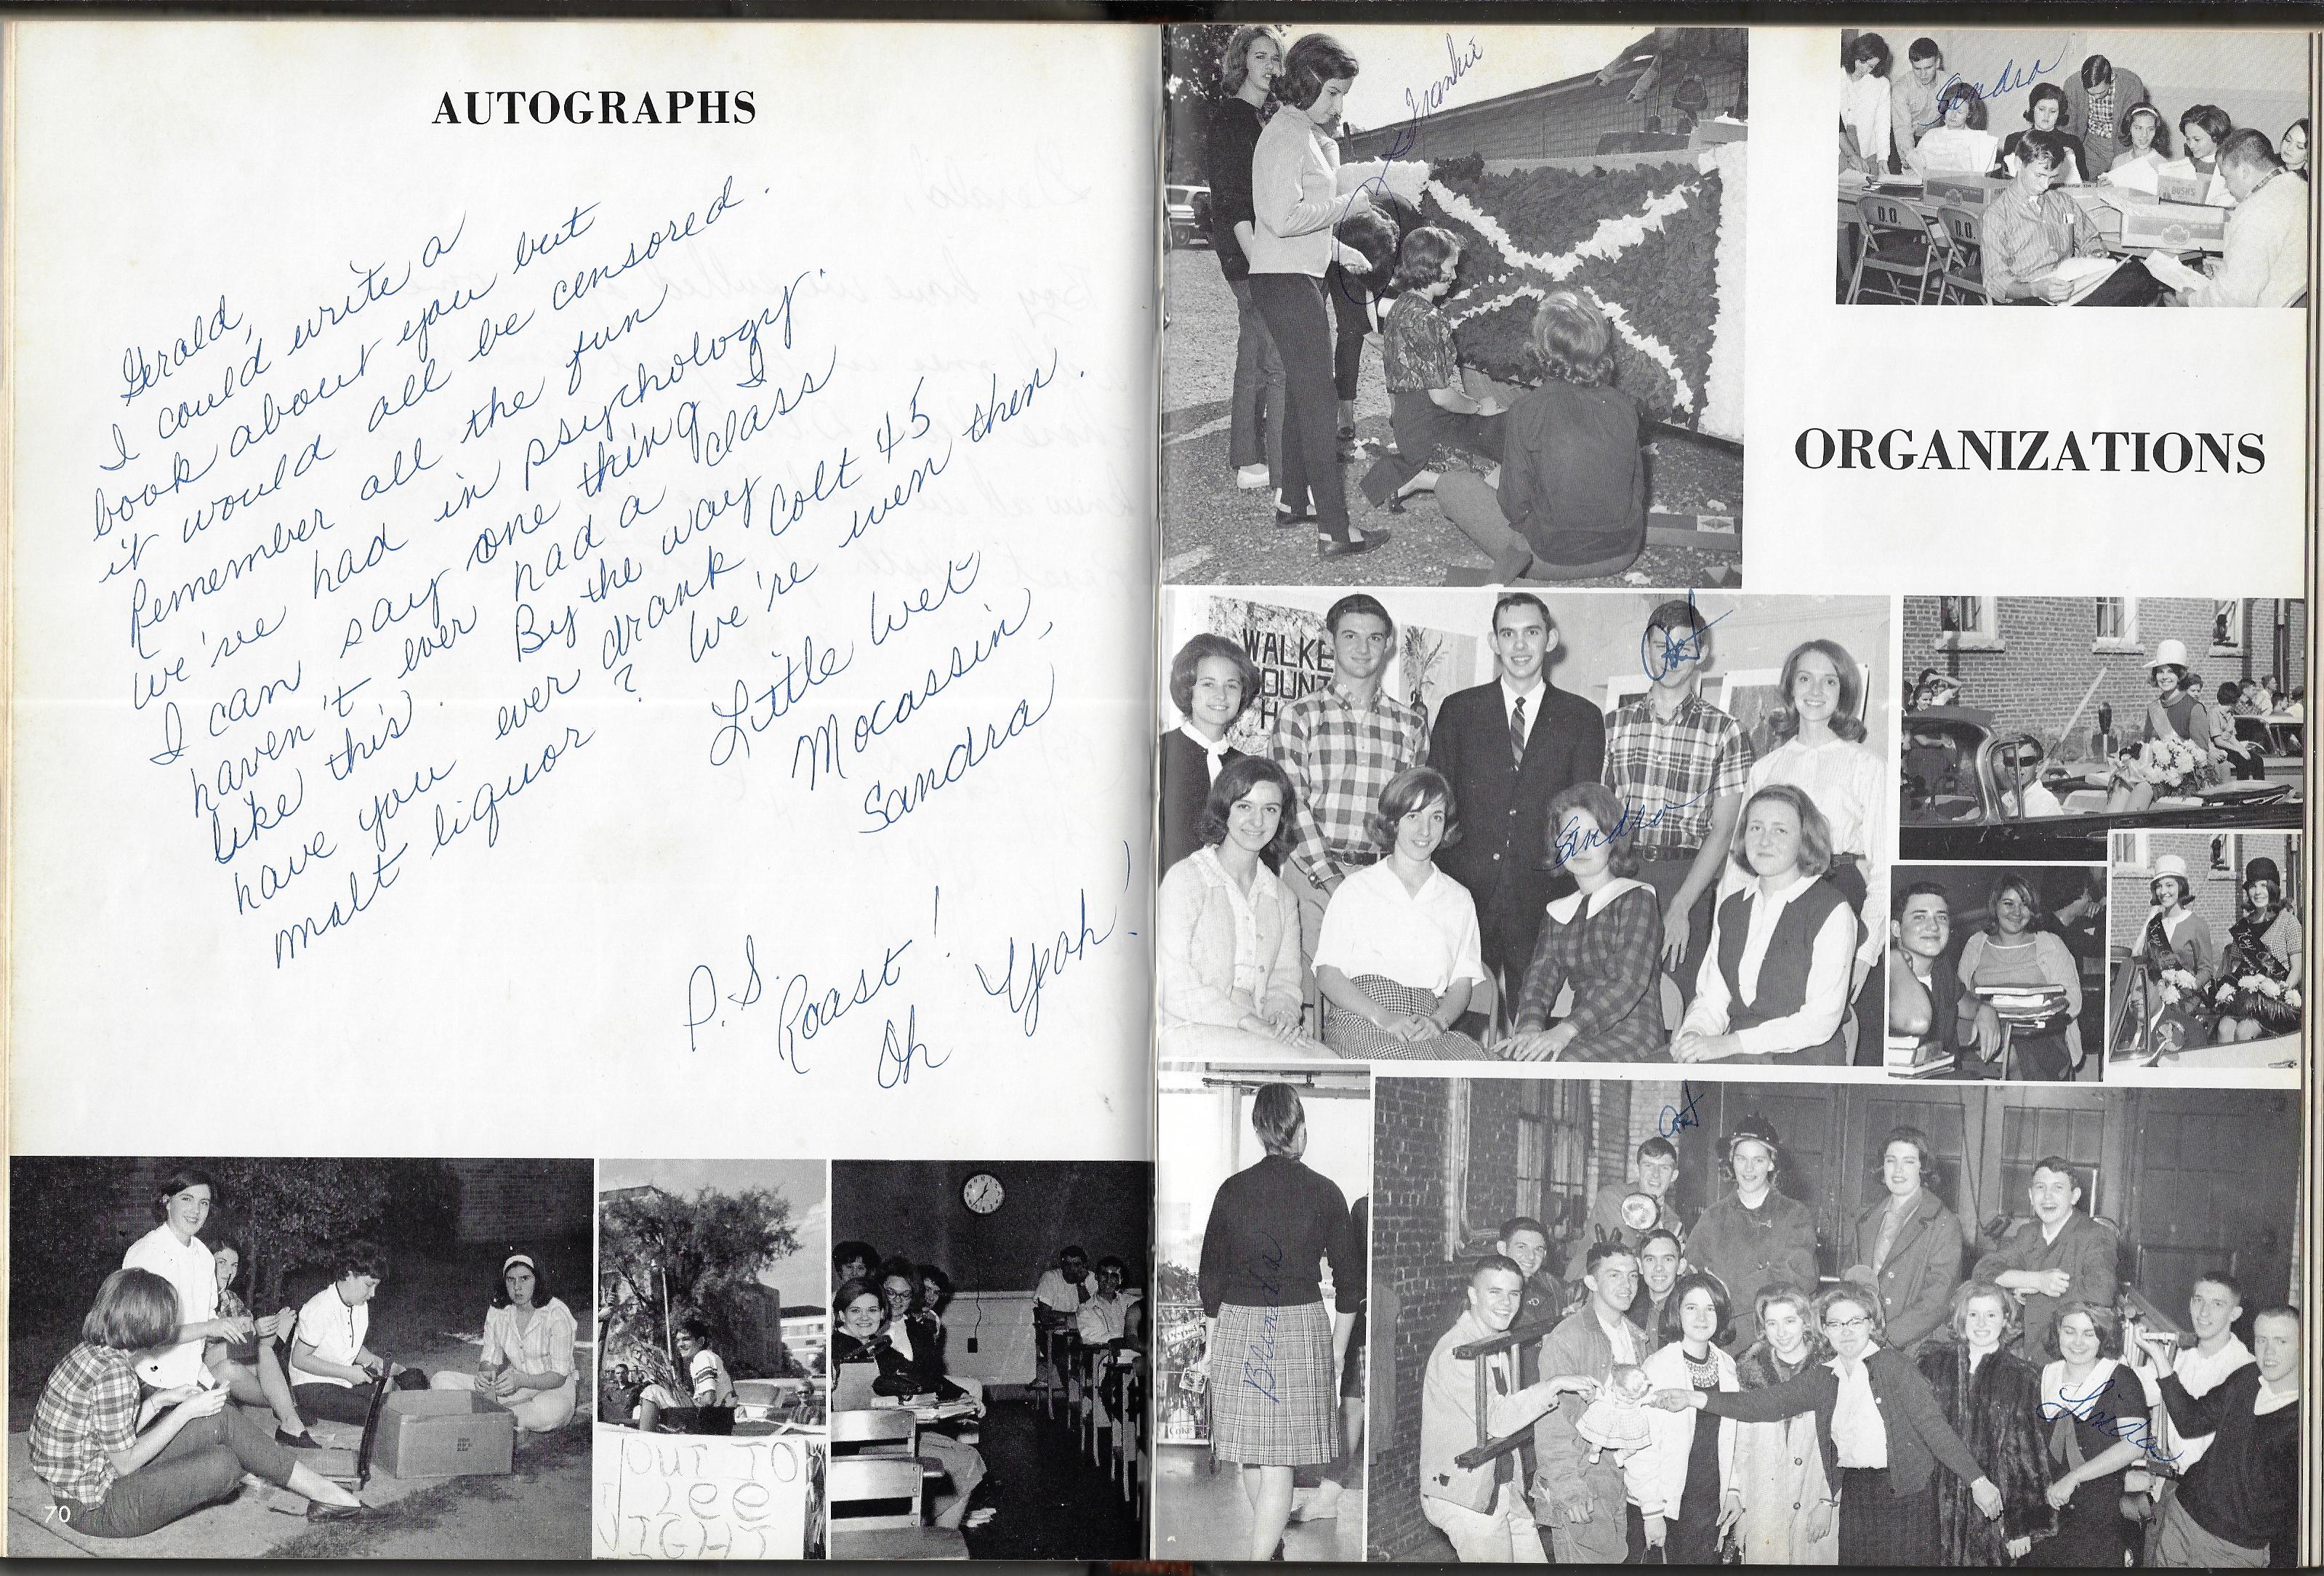 AUTOGRAPHS
Gerald,
I could write a
book about you but
it would all be censored.
Remember all the fun
we've had in psychology.
I can say one thing I
haven't ever had a class
like this. By the way
have you ever drank Colt 45
malt liquor? We're wen then.
Little Wet
Mocassin,
Sandra
P.S.
Roast!
Oh Yeah!
OUT TO
Lee
IGHT
70
Frankie
Sandra
D.O.
D.O.
BUSH'S
ORGANIZATIONS
WALKE
OUNT
H
Art
Sandra
Art
Blenda
Pepsi
Coke
Linda